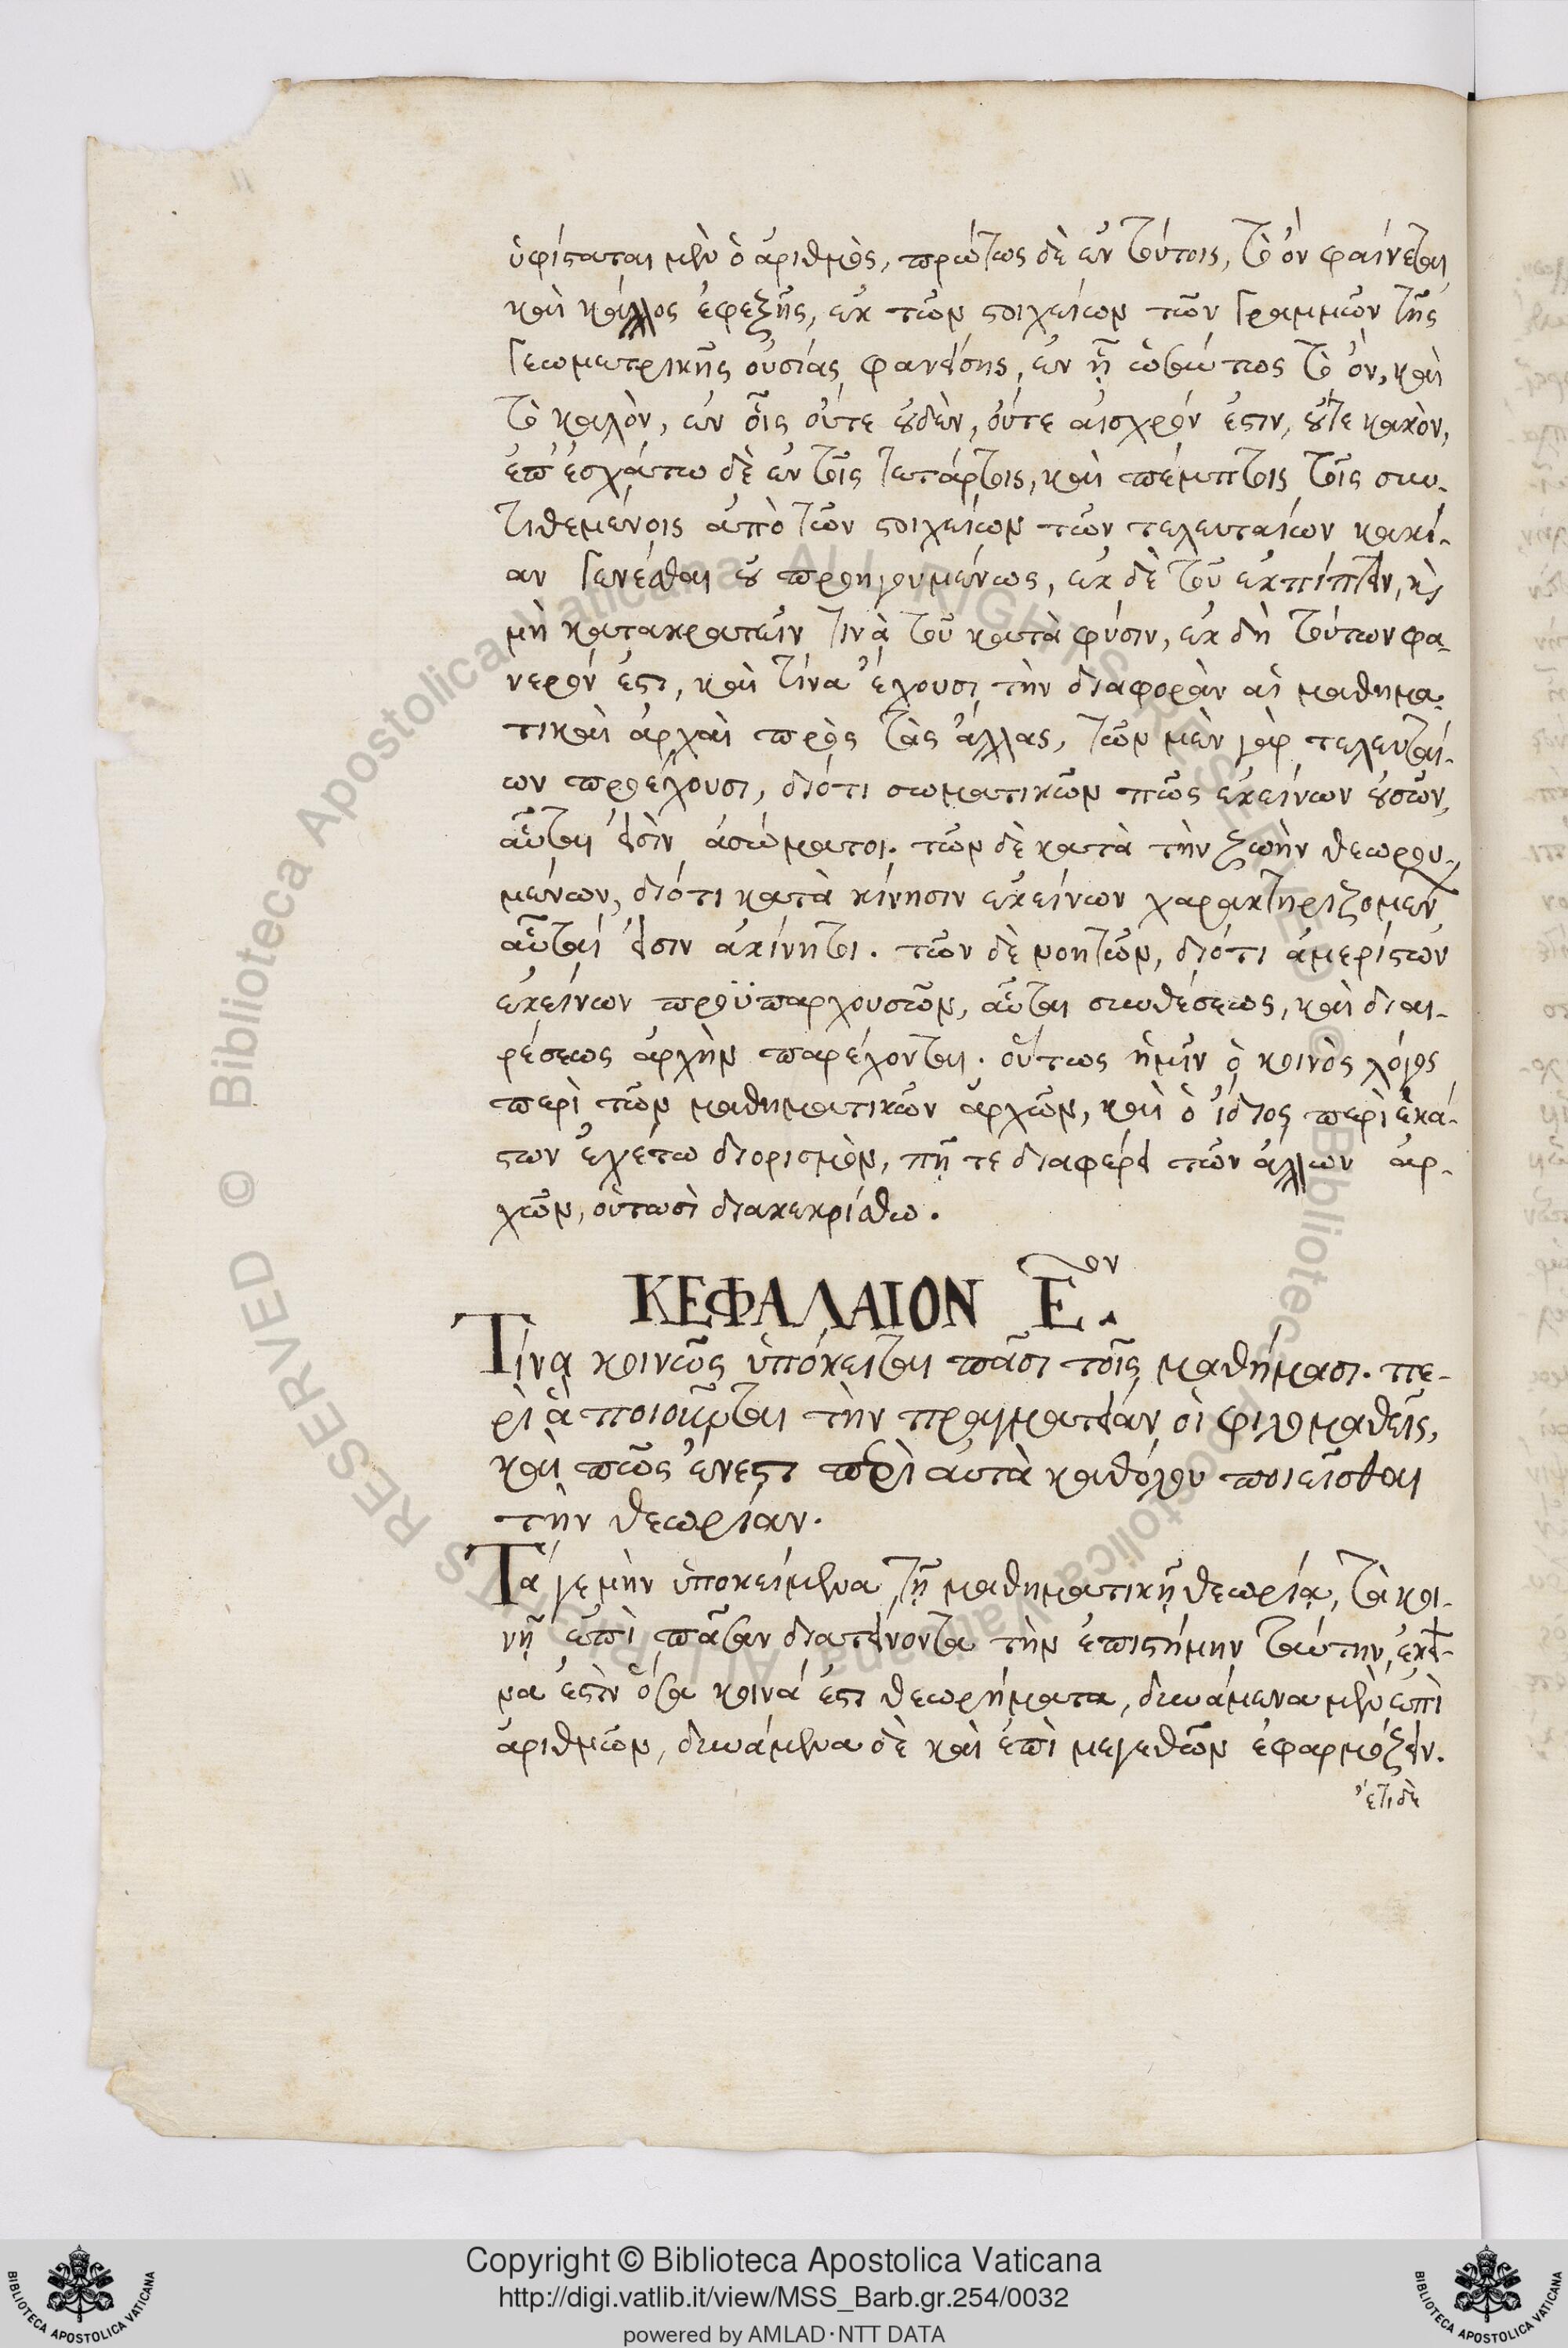 ὑφίσταται μὲν ὁ ἀριθμὸς, πρώτως δὲ ἐν τούτοις, τὸ ὂν φαίνεται
καὶ κάλλος ἐφεξῆς, ἐκ τῶν στοιχείων τῶν γραμμῶν τῆς
γεωμετρικῆς οὐσίας φανείσης, ἐν ᾗ ὡσαύτως τὸ ὂν, καὶ
τὸ καλὸν, ἐν οἷς οὔτε οὐδὲν, οὔτε αἰσχρόν ἐστιν, οὔτε κακὸν,
ἐπ' ἐσχάτω δὲ ἐν τοῖς τετάρτοις, καὶ πέμπτοις τοῖς συν-
τιθεμένοις ἀπὸ τῶν στοιχείων τῶν τελευταίων κακί-
αν γενέσθαι οὐ προηγουμένως, ἐκ δὲ τοῦ ἐκπίπτειν, καὶ
μὴ κατακρατεῖν τινὰ τοῦ κατὰ φύσιν, ἐκ δὴ τούτων φα-
νερόν ἐστι, καὶ τίνα ἔχουσι τὴν διαφορὰν αἱ μαθημα-
τικαὶ ἀρχαὶ πρὸς τὰς ἄλλας, τῶν μὲν γὰρ τελευταί-
ων προέχουσι, διότι σωματικῶν πως ἐκείνων οὐσῶν,
αὗται εἰσὶν ἀσώματοι. τῶν δὲ κατὰ τὴν ζωὴν θεωρου-
μένων, διότι κατὰ κίνησιν ἐκείνων χαρακτηριζομένων
αὗταί εἰσιν ἀκίνητοι. τῶν δὲ νοητῶν, διότι ἀμερίστων
ἐκείνων προϋπαρχουσῶν, αὗται συνθέσεως, καὶ διαι-
ρέσεως ἀρχὴν παρέχονται. οὕτως ἡμῖν ὁ κοινὸς λόγος
περὶ τῶν μαθηματικῶν ἀρχῶν, καὶ ὁ ἴδιος περὶ ἑκά-
στων ἐχέτω διορισμὸν, πῆ τε διαφέρει τῶν ἄλλων ἀρ-
χῶν, οὑτωσὶ διακεκρίσθω.
ΚΕΦΑΛΑΙΟΝ Ε.ον
Τίνα κοινῶς ὑπόκειται πᾶσι τοῖς μαθήμασι. πε-
ρὶ ἃ ποιοῦνται τὴν πραγματείαν οἱ φιλομαθεῖς,
καὶ πῶς ἔνεστι περὶ αὐτὰ καθόλου ποιεῖσθαι
τὴν θεωρίαν.
Τά γε μὴν ὑποκείμενα τῇ μαθηματικῇ θεωρίᾳ, τὰ κοι-
νῇ ἐπὶ πᾶσαν διατείνοντα τὴν ἐπιστήμην ταύτην, ἐκεῖ-
να ἐστὶν ὅσα κοινά ἐστι θεωρήματα, δυνάμενα μὲν ἐπὶ
ἀριθμῶν, δυνάμενα δὲ καὶ ἐπὶ μεγεθῶν ἐφαρμόζειν.
ἔτι δὲ
Copyright © Biblioteca Apostolica Vaticana
http://digi.vatlib.it/view/MSS_Barb.gr.254/0032
powered by AMLAD·NTT DATA
BIBLIOTECA APOSTOLICA VATICANA
BIBLIOTECA APOSTOLICA VATICANA